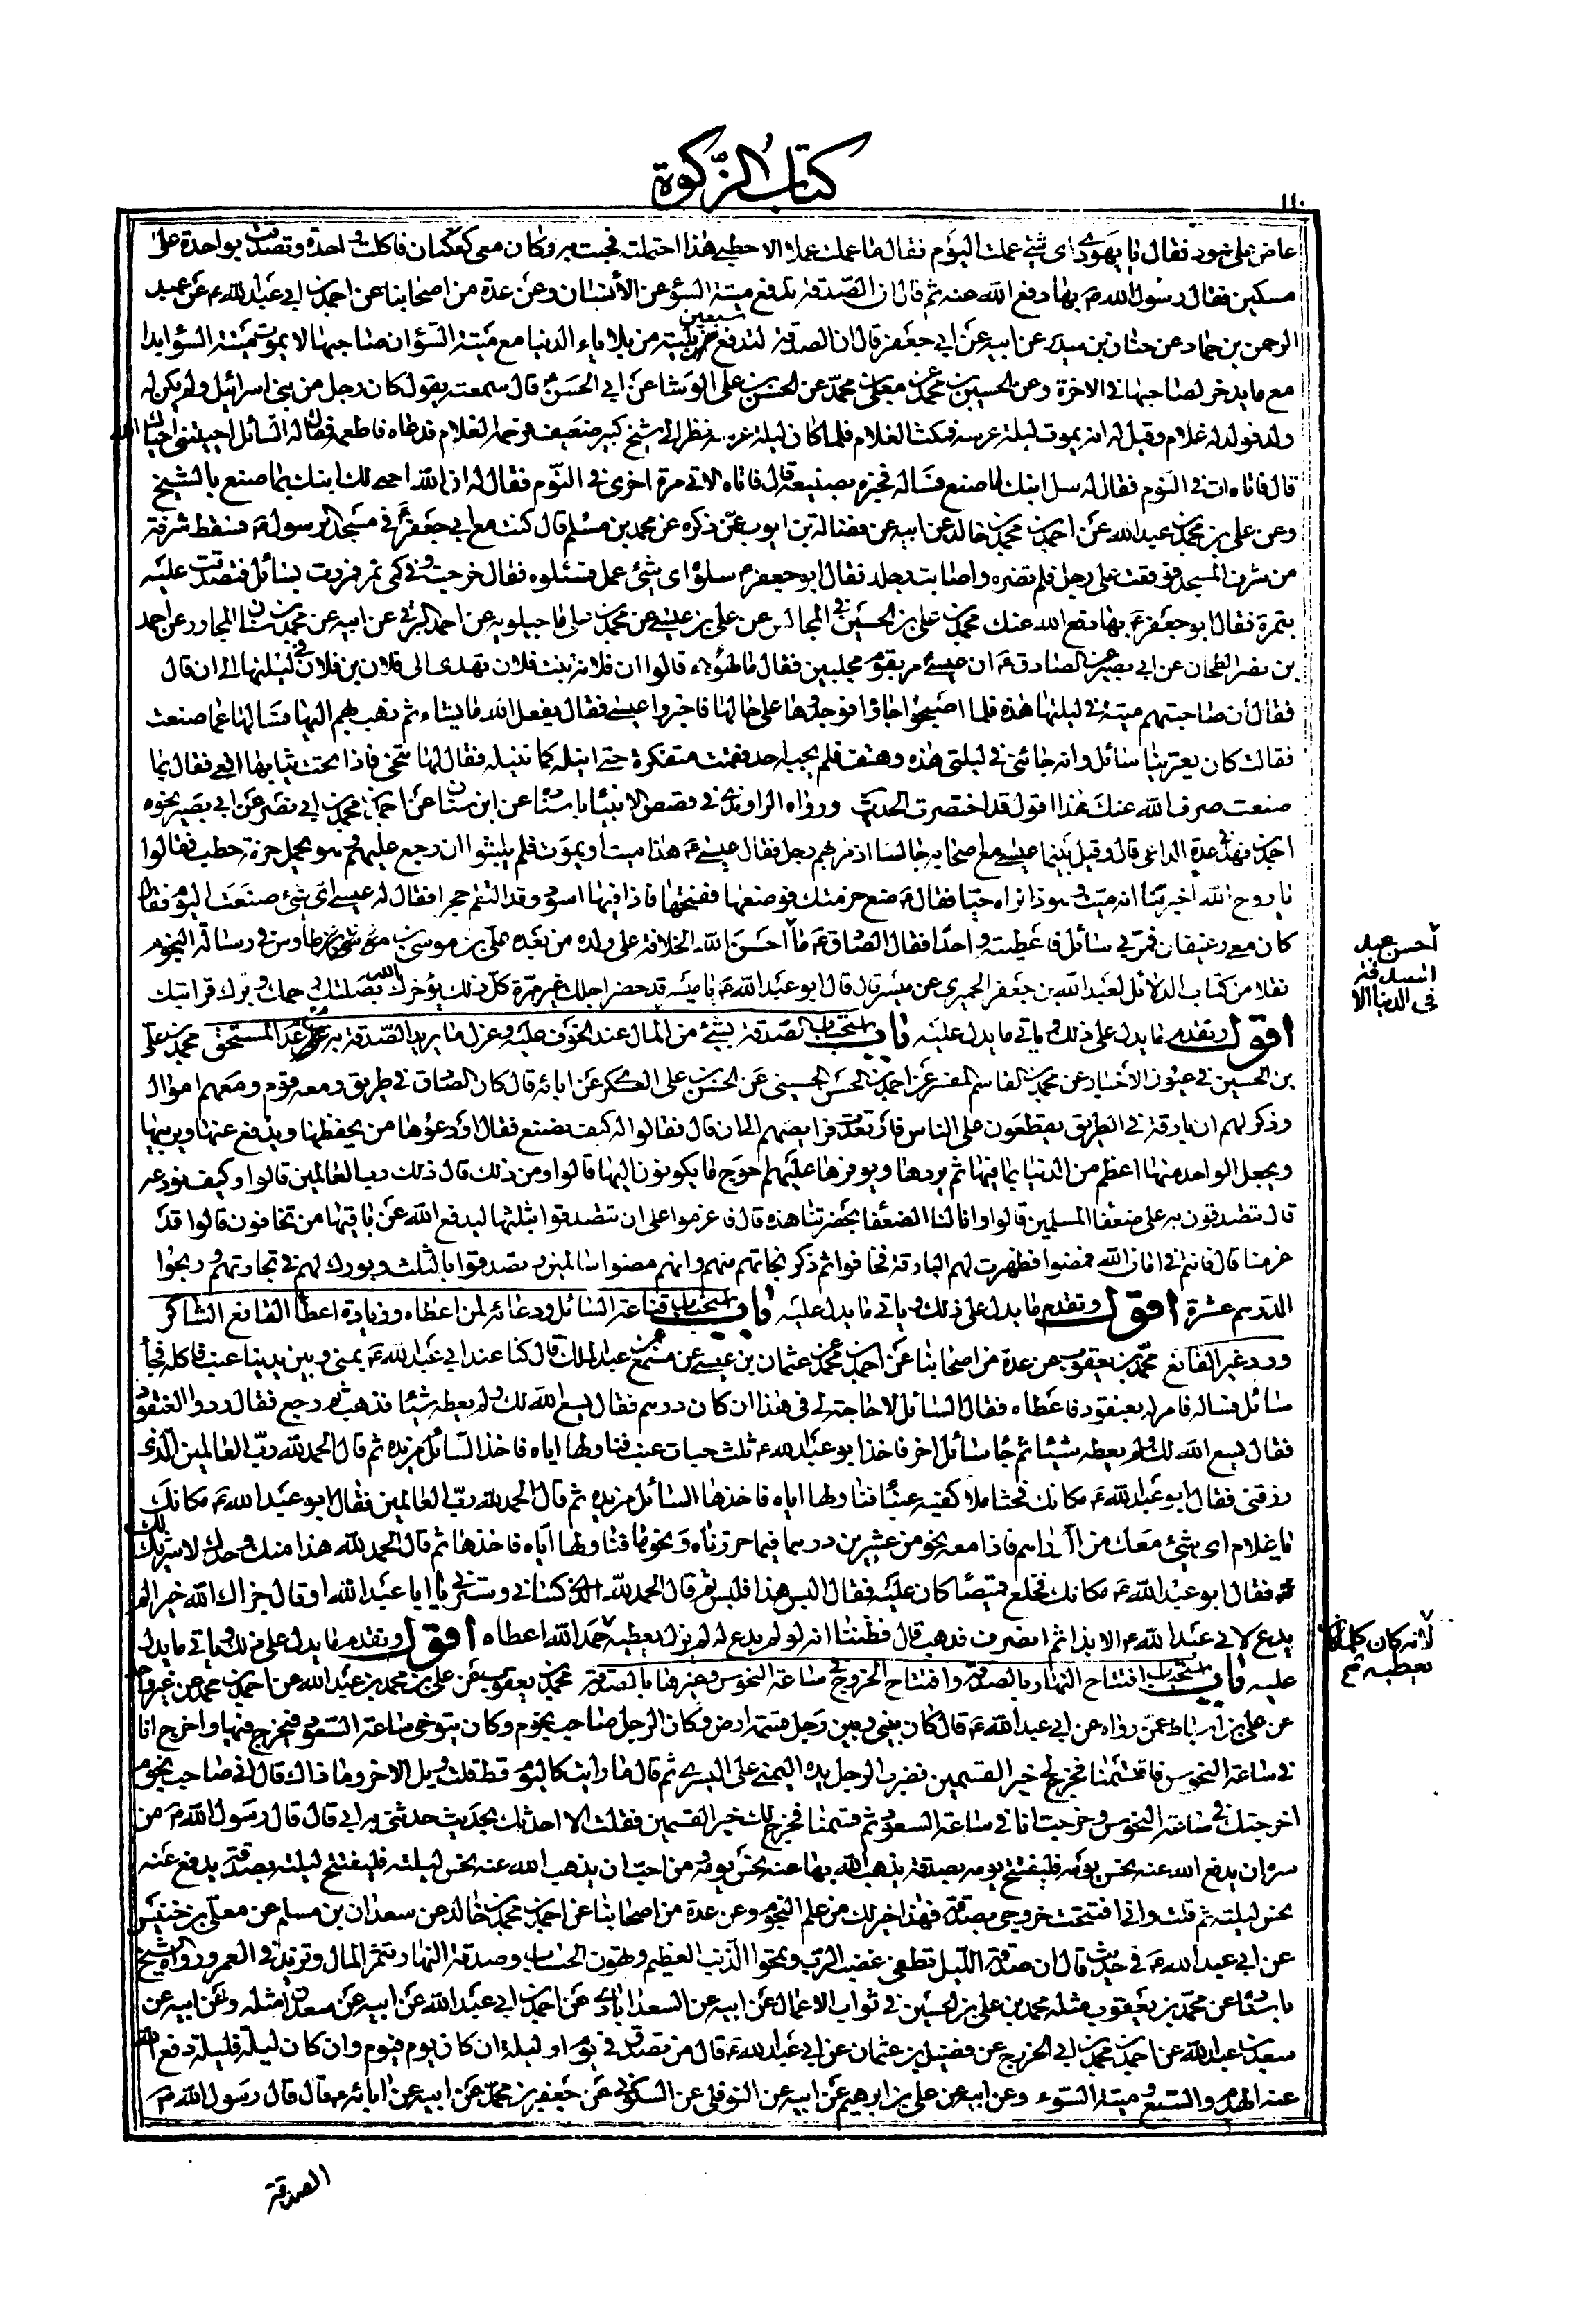 كتاب الزكوة
عاض على عود فقال يا يهودى اى شئ عملت اليوم فقال ما عملت عملا الا حطبى هذا احتملته فجئت به وكان معى كعكتان فاكلت واحدة وتصدقت بواحدة على
مسكين فقال رسول الله ص بها دفع الله عنه ثم قال ان الصدقة تدفع ميتة السوء عن الأنسان وعن عدة من اصحابنا عن احمد بن ابى عبد الله عن عبد
الرحمن بن حماد عن حنان بن سدير عن ابيه عن ابى جعفر قال ان الصدقة لتدفع سبعين بلية من بلايا الدنيا مع ميتة السوء ان صاحبها لا يموت ميتة السوء ابدا
مع ما يدخر لصاحبها فى الاخرة وعن الحسين بن محمد عن معلى بن محمد عن الحسن بن على الوشا عن ابى الحسن ع قال سمعته يقول كان رجل من بنى اسرائيل ولم يكن له
ولد فولد له غلام وقيل له انه يموت ليلة عرسه فمكث الغلام فلما كان ليلة عرسه نظر الى شيخ كبير ضعيف فرحمه الغلام فدعاه فاطعمه فقال له السائل احييتنى احياك الله
قال فاتاه ات فى النوم فقال له سل ابنك ما صنع فسأله فخبره بصنيعه قال فاتاه الاتى مرة اخرى فى النوم فقال له ان الله احيى لك ابنك بما صنع بالشيخ
وعن على بن محمد بن عبد الله عن احمد بن محمد بن خالد عن ابيه عن فضالة بن ايوب عمن ذكره عن محمد بن مسلم قال كنت مع ابى جعفر ع فى مسجد الرسول ص فسقط شرفة
من شرف المسجد فوقعت على رجل فلم تضره واصابت رجله فقال ابو جعفر ع سلوه اى شئ عمل فسئلوه فقال خرجت وفى كمى تمر فمررت بسائل فتصدقت عليه
بتمرة فقال ابو جعفر ع بها دفع الله عنك محمد بن على بن الحسين فى المجالس عن على بن عيسى عن محمد بن على ماجيلويه عن احمد البرقى عن ابيه عن محمد بن سنان المجاور عن احمد
بن نصر الطحان عن ابى بصير عن الصادق ع ان عيسى مر بقوم مجلبين فقال ما لهؤلاء قالوا ان فلانة بنت فلان تهدى الى فلان بن فلان فى ليلتها الى ان قال
فقال ان صاحبتهم ميتة فى ليلتها هذه فلما اصبحوا جاؤا فوجدوها على حالها فاخبروا عيسى فقال يفعل الله ما يشاء ثم ذهب بهم اليها فسألها عما صنعت
فقالت كان يعترينا سائل وانه جائنى فى ليلتى هذه وهتف فلم يجبه احد فقمت متفكرة حتى انيله كما ننيله فقال لها تنحى فاذا تحت ثيابها افعى فقال بما
صنعت صرف الله عنك هذا اقول قد اختصرت الحديث ورواه الراوندى فى قصص الانبياء باسناده عن ابن سنان عن احمد بن محمد بن ابى نصر عن ابى بصير نحوه
احمد بن فهد فى عدة الداعى قال وقيل بينما عيسى مع اصحابه جالسا اذ مر بهم رجل فقال عيسى ع هذا ميت او يموت فلم يلبثوا ان رجع عليهم وهو يحمل حزمة حطب فقالوا
يا روح الله اخبرتنا انه ميت وهو ذا نراه حيا فقال ع ضع حزمتك فوضعها ففتحها فاذا فيها اسود قد القم حجرا فقال له عيسى اى شئ صنعت اليوم فقال
كان معى رغيفان فمر بى سائل فاعطيته واحدا فقال الصادق ع ما احسن الله الخلافة على ولده من بعده على بن موسى بن طاوس فى رسالة النجوم
أحسن عبد
الصدقة
فى الدنيا الا
نقلا من كتاب الدلائل لعبد الله بن جعفر الحميرى عن ميسر قال قال ابو عبد الله ع يا ميسر قد حضر اجلك غير مرة كل ذلك يؤخرك الله بصلتك رحمك وبرك قرابتك
اقول وتقدم ما يدل على ذلك وياتى ما يدل عليه باب استحباب الصدقة بشئ من المال عند الخوف عليه وعزل ما يريد الصدقة به عند عدم المستحق محمد بن على
بن الحسين فى عيون الأخبار عن محمد بن القاسم المفسر عن احمد بن الحسن الحسينى عن الحسن بن على العسكرى عن ابائه قال كان الصادق فى طريق ومعه قوم ومعهم اموال
وذكر لهم ان بارقة فى الطريق يقطعون على الناس فارتعدت فرايصهم الى ان قال فقالوا له كيف نصنع فقال اودعوها من يحفظها ويدفع عنها ويربيها
ويجعل الواحد منها اعظم من الدنيا بما فيها ثم يردها ويوفرها عليكم احوج ما تكونون اليها قالوا ومن ذلك قال ذلك رب العالمين قالوا وكيف نودعه
قال تتصدقون به على ضعفاء المسلمين قالوا وانى لنا الضعفا بحضرتنا هذه قال فاعزموا على ان تتصدقوا بثلثها ليدفع الله عن باقيها من تخافون قالوا قد
عزمنا قال فانتم فى امان الله فمضوا فظهرت لهم البارقة فخافوا ثم ذكر نجاتهم منهم وانهم مضوا سالمين وتصدقوا بالثلث وبورك لهم فى تجارتهم وربحوا
الدرهم عشرة اقول وتقدم ما يدل على ذلك وياتى ما يدل عليه باب استحباب قناعة السائل ودعائه لمن اعطاه وزيادة اعطاء القانع الشاكر
ورد غير القانع محمد بن يعقوب عن عدة من اصحابنا عن احمد بن محمد عن عثمان بن عيسى عن مسمع بن عبد الملك قال كنا عند ابى عبد الله ع بمنى وبين يدينا عنب ناكله فجاء
سائل فسأله فامر له بعنقود فاعطاه فقال السائل لا حاجة لى فى هذا ان كان درهم فقال يسع الله لك ولم يعطه شيئا فذهب ثم رجع فقال ردوا العنقود
فقال يسع الله لك ولم يعطه شيئا ثم جاء سائل اخر فاخذ ابو عبد الله ع ثلث حبات عنب فناولها اياه فاخذ السائل من يده ثم قال الحمد لله رب العالمين الذى
رزقنى فقال ابو عبد الله ع مكانك فحثا ملا كفيه عنبا فناولها اياه فاخذها السائل من يده ثم قال الحمد لله رب العالمين فقال ابو عبد الله ع مكانك
يا غلام اى شئ معك من الدراهم فاذا معه نحو من عشرين درهما فيما حرزناه او نحوها فناولها اياه فاخذها ثم قال الحمد لله هذا منك وحدك لا شريك لك
فقال ابو عبد الله ع مكانك فخلع قميصا كان عليه فقال البس هذا فلبس ثم قال الحمد لله الذى كسانى وسترنى يا ابا عبد الله او قال جزاك الله خيرا لم
يدع لابى عبد الله ع الا بذا ثم انصرف فذهب قال فظننا انه لو لم يدع له لم يزل يعطيه حمد الله اعطاه اقول وتقدم ما يدل على ذلك وياتى ما يدل
لأنه كان كلما كان
يعطيه
عليه باب استحباب افتتاح النهار بالصدقة وافتتاح الخروج فى ساعة النحوس وغيرها بالصدقة محمد بن يعقوب عن على بن محمد بن عبد الله عن احمد بن محمد عن غير واحد
عن على بن اسباط عمن رواه عن ابى عبد الله ع قال كان بينى وبين رجل قسمة ارض وكان الرجل صاحب نجوم وكان يتوخى ساعة السعود فيخرج فيها واخرج انا
فى ساعة النحوس فاقتسمنا فخرج لى خير القسمين فضرب الرجل يده اليمنى على اليسرى ثم قال ما رايت كاليوم قط قلت ويل الاخر وما ذاك قال انى صاحب نجوم
اخرجتك فى ساعة النحوس وخرجت انا فى ساعة السعود ثم قسمنا فخرج لك خير القسمين فقلت الا احدثك بحديث حدثنى به ابى قال قال رسول الله ص من
سره ان يدفع الله عنه نحس يومه فليفتتح يومه بصدقة يذهب الله بها عنه نحس يومه ومن احب ان يذهب الله عنه نحس ليلته فليفتتح ليلته بصدقة يدفع عنه
نحس ليلته ثم قلت وانى افتتحت خروجى بصدقة فهذا خير لك من علم النجوم وعن عدة من اصحابنا عن احمد بن محمد بن خالد عن سعدان بن مسلم عن معلى بن خنيس
عن ابى عبد الله ع فى حديث قال ان صدقة الليل تطفى غضب الرب وتمحو الذنب العظيم وتهون الحساب وصدقة النهار تثمر المال وتزيد فى العمر ورواه الشيخ
باسناده عن محمد بن يعقوب مثله محمد بن على بن الحسين فى ثواب الاعمال عن ابيه عن السعدابادى عن احمد بن ابى عبد الله عن ابيه عن سعدان مثله وعن ابيه عن
سعد بن عبد الله عن احمد بن محمد بن ابى الخزرج عن فضيل بن عثمان عن ابى عبد الله ع قال من تصدق فى يوم او ليلة ان كان يوم فيوم وان كان ليلة فليلة دفع الله
عنه الهدم والسبع وميتة السوء وعن ابيه عن على بن ابرهيم عن ابيه عن النوفلى عن السكونى عن جعفر بن محمد عن ابيه عن ابائه ع قال قال رسول الله ص
الصدقة